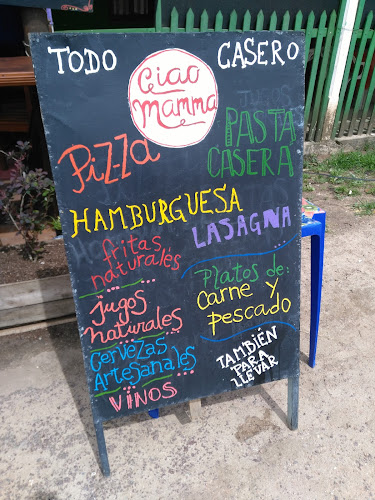 TODO CASERO
Ciao
Mamma
Pizza
PASTA
CASERA
HAMBURGUESA
LASAGNA
fritas
naturales
Platos de:
carne y
pescado
jugos
naturales
Cervezas
Artesanales
VINOS
TAMBIÉN
PARA
LLEVAR